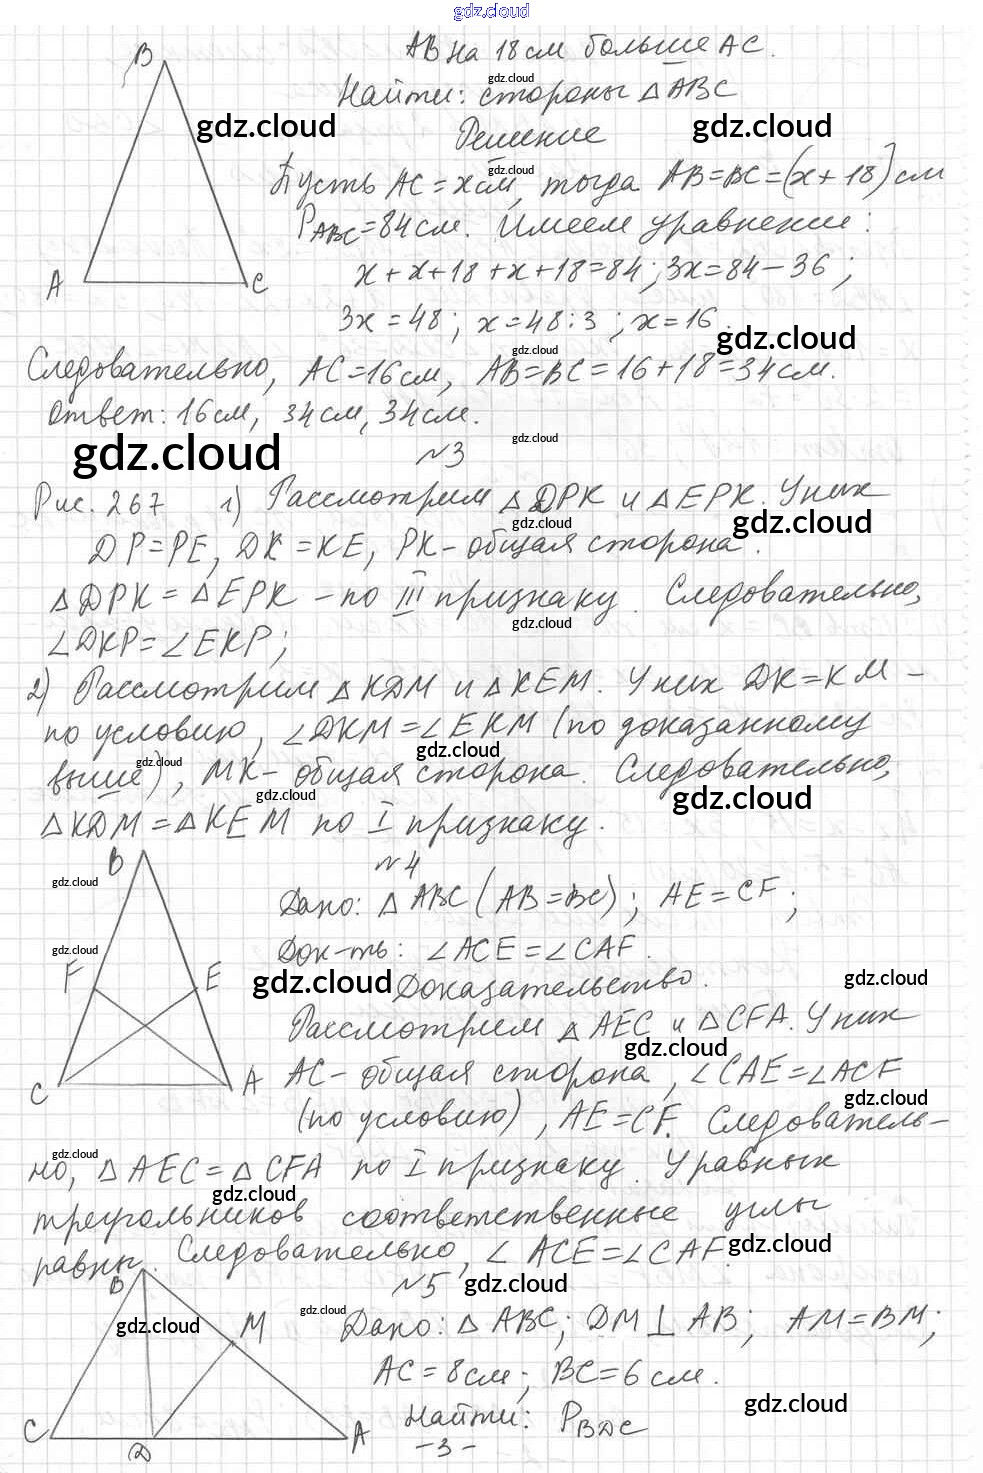 gdz.cloud
B
AB на 18 см больше AC.
gdz.cloud
Найти: стороны △ ABC
gdz.cloud
gdz.cloud
Решение
gdz.cloud
Пусть AC = x см, тогда AB=BC=(x+18) см
P ABC = 84 см. Имеем уравнение:
x + x + 18 + x + 18 = 84; 3x = 84 - 36;
A
C
3x = 48; x = 48 : 3; x = 16.
gdz.cloud
gdz.cloud
Следовательно, AC = 16 см, AB = BC = 16 + 18 = 34 см.
Ответ: 16 см, 34 см, 34 см.
gdz.cloud
gdz.cloud
№3
Рис. 267 1) Рассмотрим △ DPK и △ EPK. У них
gdz.cloud
gdz.cloud
DP = PE, DK = KE, PK - общая сторона.
△ DPK = △ EPK - по III признаку. Следовательно,
gdz.cloud
∠DKP = ∠EKP;
2) Рассмотрим △ KDM и △ KEM. У них DK = KM -
по условию, ∠DKM = ∠EKM (по доказанному
gdz.cloud
gdz.cloud
выше), MK - общая сторона. Следовательно,
gdz.cloud
gdz.cloud
△ KDM = △ KEM по I признаку.
B
№4
gdz.cloud
Дано: △ ABC (AB = BC); AE = CF;
gdz.cloud
Док-ть: ∠ACE = ∠CAF.
F
E
gdz.cloud
Доказательство.
gdz.cloud
Рассмотрим △ AEC и △ CFA. У них
gdz.cloud
C
A
AC - общая сторона, ∠CAE = ∠ACF
gdz.cloud
(по условию), AE = CF. Следователь-
gdz.cloud
но, △ AEC = △ CFA по I признаку. У равных
gdz.cloud
треугольников соответственные углы
равны. Следовательно, ∠ ACE = ∠CAF.
gdz.cloud
№5
gdz.cloud
B
gdz.cloud
gdz.cloud
M
Дано: △ ABC; DM ⊥ AB; AM = BM;
AC = 8 см; BC = 6 см.
gdz.cloud
C
D
A
Найти: P BDC
- 3 -